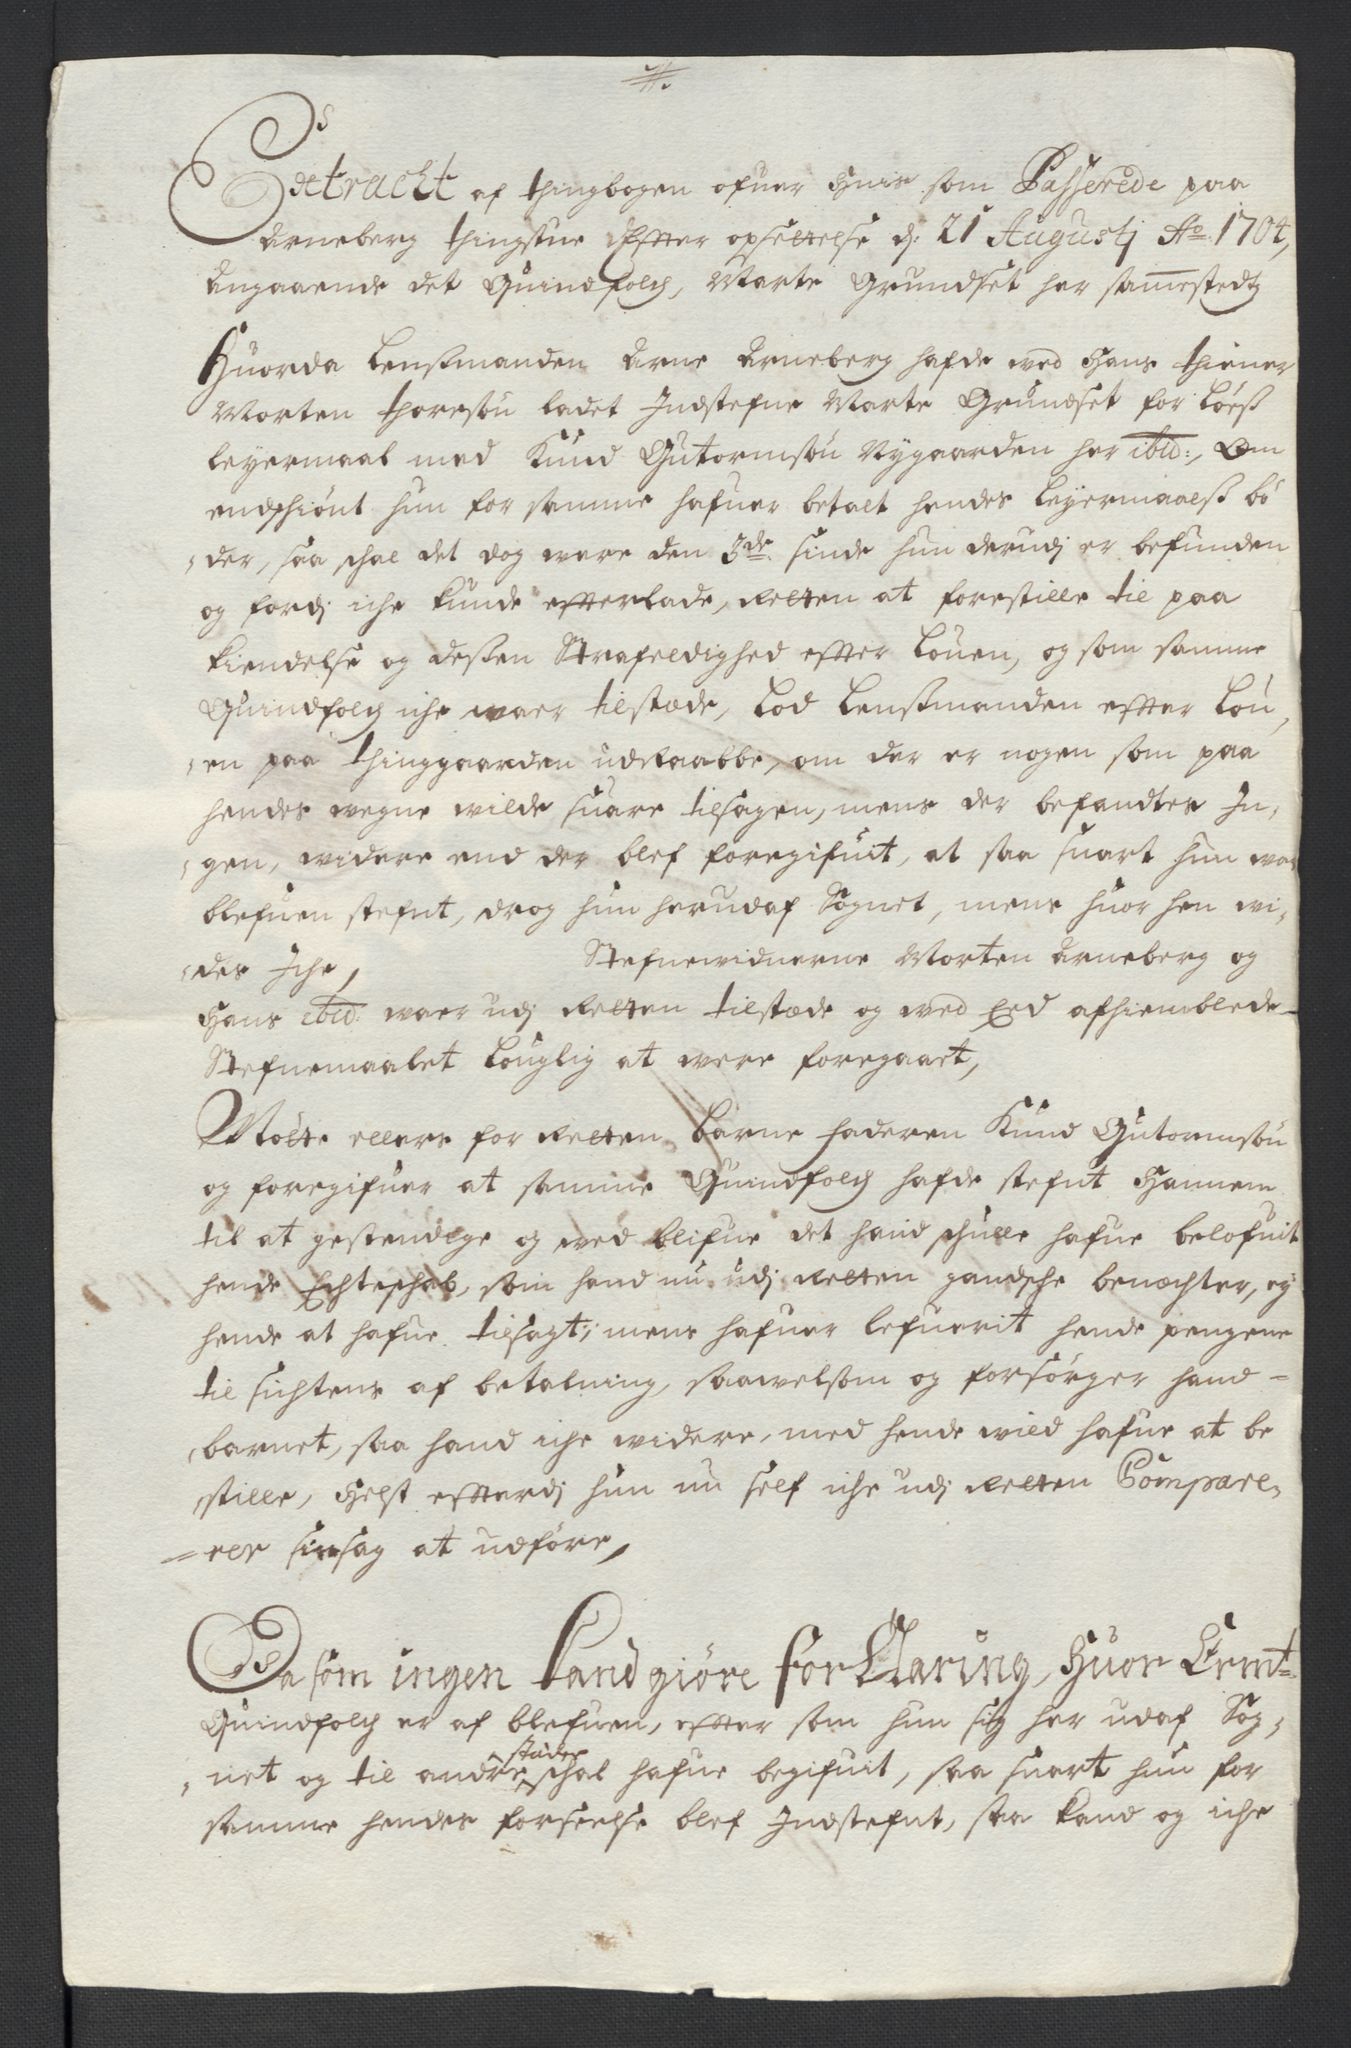 Extracht af thingbogen ofuer huis som Passerede paa
Arneberg thingstue Effter opsettelse dj: 21 Augustj Ao. 1704,
Angaaende det Quindfolch, Marte Grundset her samestedtz
Huorda Lensmanden Arne Arneberg hafde ved Hans thiener
Morten thoresøn ladet Indstefne Marte Grundset for Løeß
leyermaal med Knud Gutormsøn Nygaarden her ibid:, Om
endschiønt hun for samme hafuer betalt hendes leyermaalß bø
der, saa schal det dog were den 3de. sinde hun derudj er befunden
og fordj iche kunde efterlade, Retten at forestille til paa
kiendelse og deßen Strafeldighed effter Louen, og som samme
Quindfolch iche waer tilstæde, Lod Lensmanden effter Lou,
en paa thinggaarden udraabbe, om der er nogen som paa
hendes wegne wilde suare tilsagen, mens der befandtes In,
gen, widere end der blef foregifuit, at saa snart hun war
blefuen stefnt, drog hun herudaf Sognet, mens huor hen wi,
des Iche, Stefnewidnerne Morten Arneberg og
Hans ibid: waer udj Retten tilstæde og ved Eed afhiemblede
Stefnemaalet Louglig at were foregaaet,
Møtte ellers for Retten barne faderen Knud Gutormsøn
og foregifuer at samme Quindfolch hafde stefnt Hannem
til at gestendige og ved blifue det hand schulle hafue belofuit
hende Echteschab, som hand nu udj Retten gandsche benæchter, ey
hende at hafue tilsagt; mens hafuer lefuerit hende pengene
til sichtens af betalning, saawelsom og forsørger hand
barnet, saa hand iche widere, med hende wild hafue at be
stille, Helst effterdj hun nu self iche udj Retten Compare,
rer sin sag at udføre,
Da som ingen kand giøre forklaring, Huor Ermt:
Quindfolch er af blefuen, effter som hun sig her udaf Sog,
net og til andre stæder schal hafue begifuit, saa snart hun for
samme hendes forseelse blef Indstefnt, saa kand og iche